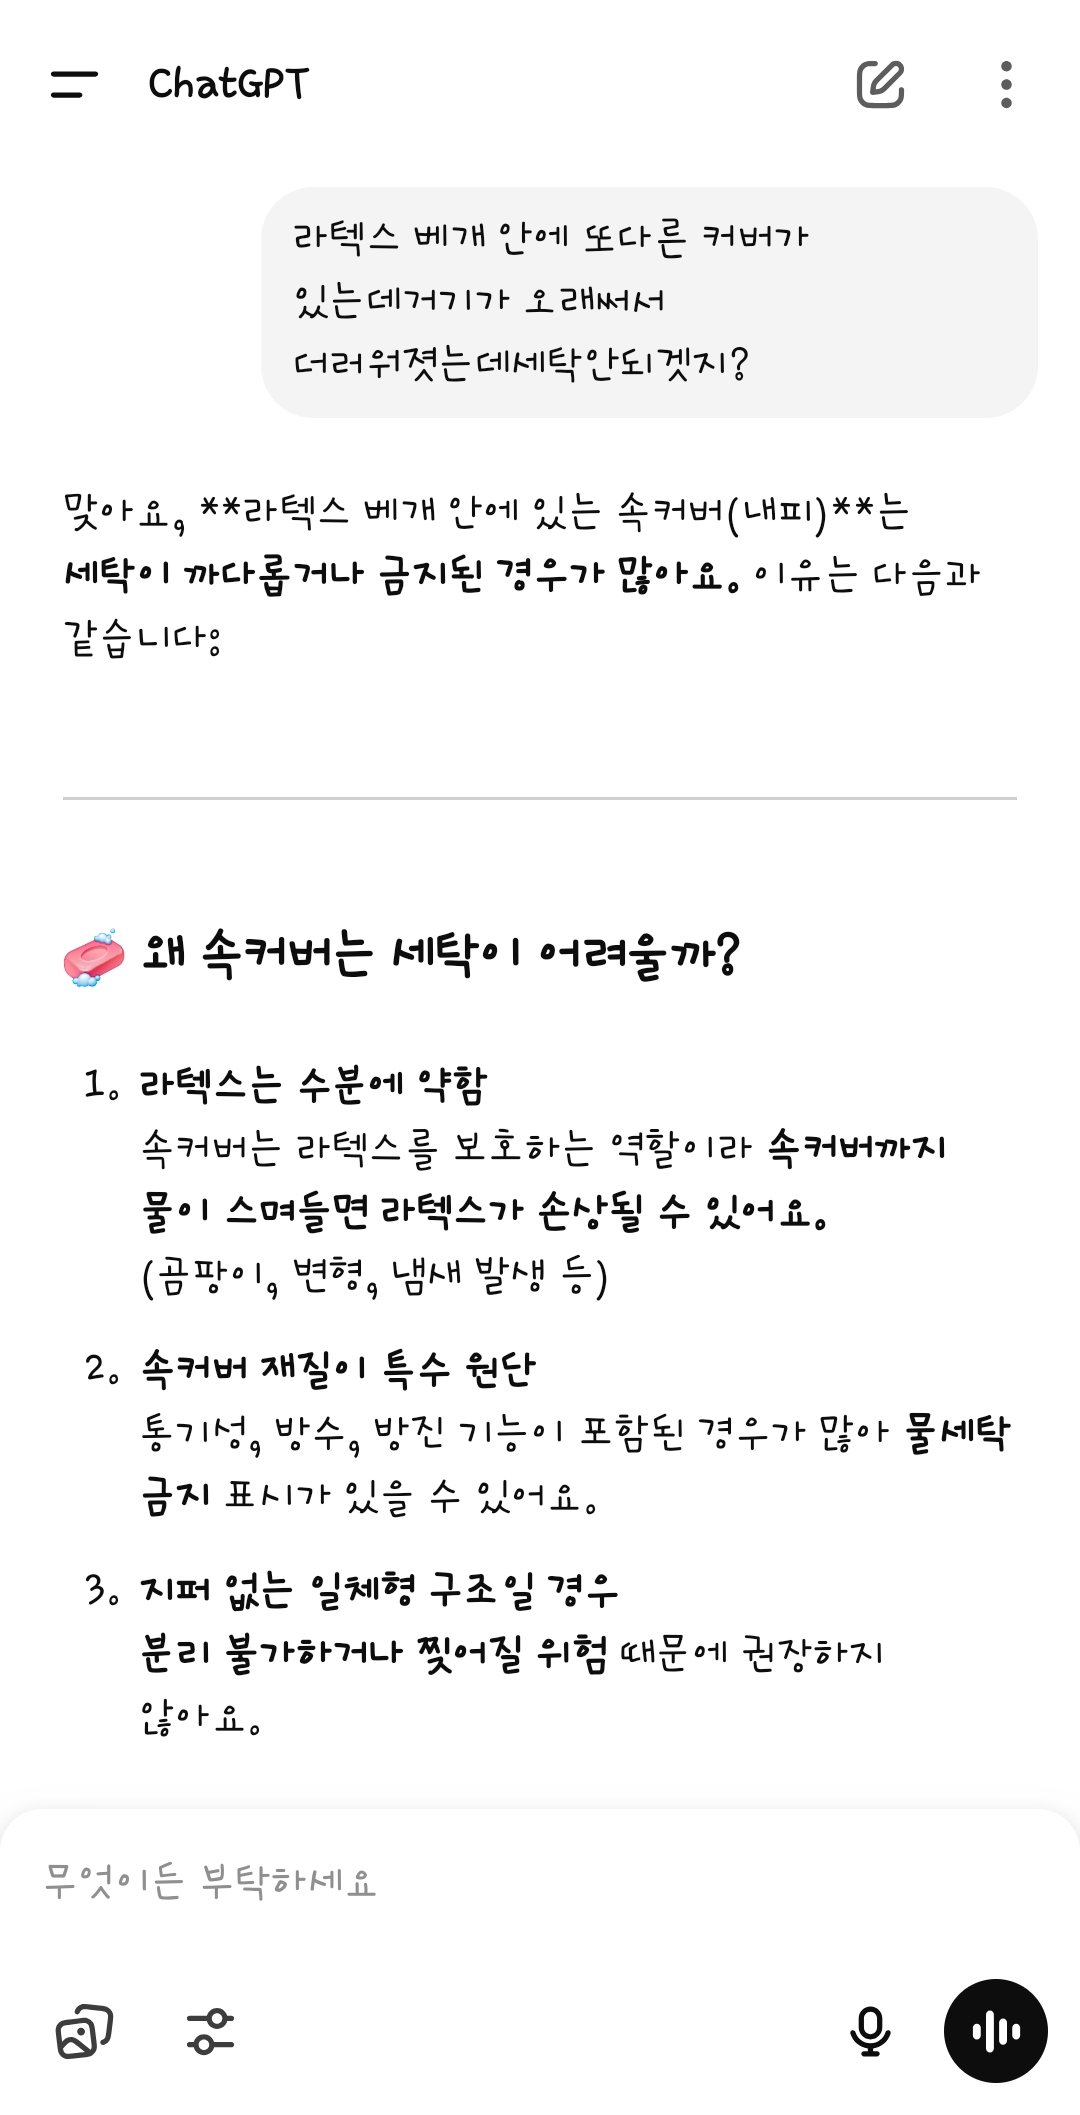 ChatGPT
라텍스 베개 안에 또다른 커버가
있는데거기가 오래써서
더러워졋는데세탁안되겟지?
맞아요, **라텍스 베개 안에 있는 속커버(내피)**는
세탁이 까다롭거나 금지된 경우가 많아요. 이유는 다음과
같습니다:
왜 속커버는 세탁이 어려울까?
1. 라텍스는 수분에 약함
속커버는 라텍스를 보호하는 역할이라 속커버까지
물이 스며들면 라텍스가 손상될 수 있어요.
(곰팡이, 변형, 냄새 발생 등)
2. 속커버 재질이 특수 원단
통기성, 방수, 방진 기능이 포함된 경우가 많아 물세탁
금지 표시가 있을 수 있어요.
3. 지퍼 없는 일체형 구조일 경우
분리 불가하거나 찢어질 위험 때문에 권장하지
않아요.
무엇이든 부탁하세요